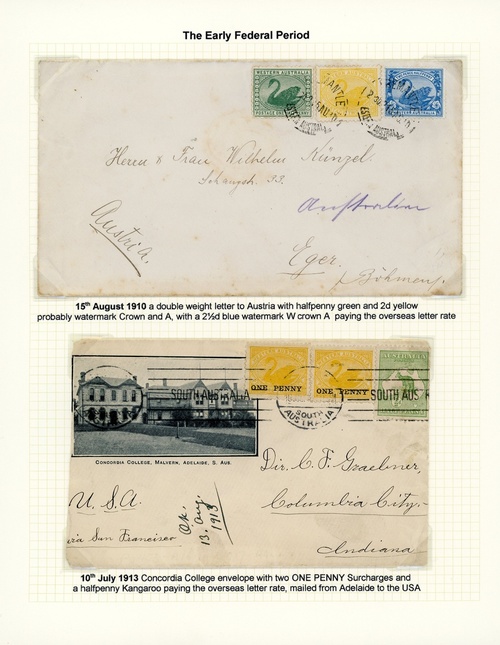 The Early Federal Period
WESTERN AUSTRALIA
Herrn & Frau Wilhelm Künzel.
Australien
Austria.
Eger.
Böhmen
15th August 1910 a double weight letter to Austria with halfpenny green and 2d yellow
probably watermark Crown and A, with a 2½d blue watermark W crown A paying the overseas letter rate
ONE PENNY
ONE PENNY
AUSTRALIA
SOUTH AUS
SOUTH
AUSTRALIA
SOUTH AUS
CONCORDIA COLLEGE, MALVERN, ADELAIDE, S. AUS.
Dir. C. F. Graebner,
U.S.A.
Columbia City.
via San Francisco
Ok.
13. Aug.
1913
Indiana
10th July 1913 Concordia College envelope with two ONE PENNY Surcharges and
a halfpenny Kangaroo paying the overseas letter rate, mailed from Adelaide to the USA